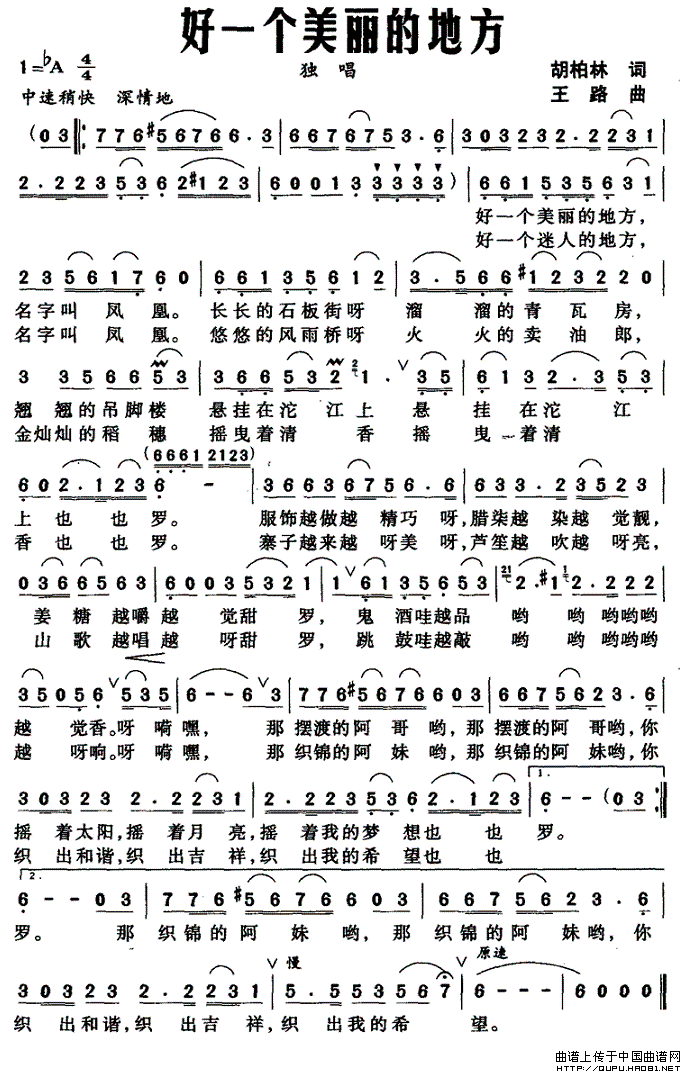 好一个美丽的地方
1=♭A 4/4 独唱 胡柏林 词
中速稍快 深情地 王路 曲
(03‖:776#567666.3|667675 3.6|303232.2231|
2.2235362#123|6001333 3 3)|661535631|
好一个美丽的地方,
好一个迷人的地方,
23561760|661356112|3.566#123220|
名字叫凤凰。长长的石板街呀溜溜的青瓦房,
名字叫凤凰。悠悠的风雨桥呀火火的卖油郎,
3 3566 53|366532 1.∨35|6132.353|
翘翘的吊脚楼 悬挂在沱江上悬挂在沱江
金灿灿的稻穗 摇曳着清香摇曳着清
(6661 2123)
602.1236 -|3663675 6.|6.323523|
上也也罗。 服饰越做越精巧呀,腊柒越染越觉靓,
香也也罗。 寨子越来越呀美呀,芦笙越吹越呀亮,
0366563|60035321|1∨6135653|2.#12.222|
姜糖越嚼越觉甜罗,鬼酒哇越品哟哟哟哟
山歌越唱越呀甜罗,跳鼓哇越敲哟哟哟哟
35056∨535|6--6∨3|776#5676603|6675675 23.6|
越觉香。呀嗬嘿, 那摆渡的阿哥哟,那摆渡的阿哥哟,你
越呀响。呀嗬嘿, 那织锦的阿妹哟,那织锦的阿妹哟,你
30323 2.2231|2.223536 2.123|1. 6--(03:‖
摇着太阳,摇着月亮,摇着我的梦想也也罗。
织出和谐,织出吉祥,织出我的希望也也
2.
6--03|776#5676603|667567523.6|
罗。 那织锦的阿妹哟,那织锦的阿妹哟,你
∨慢 ∨原速
30323 2.2231|5.5535567|6---|6000‖
织出和谐,织出吉祥,织出我的希望。
曲谱上传于中国曲谱网
HTTP://QUPU.HAO81.NET